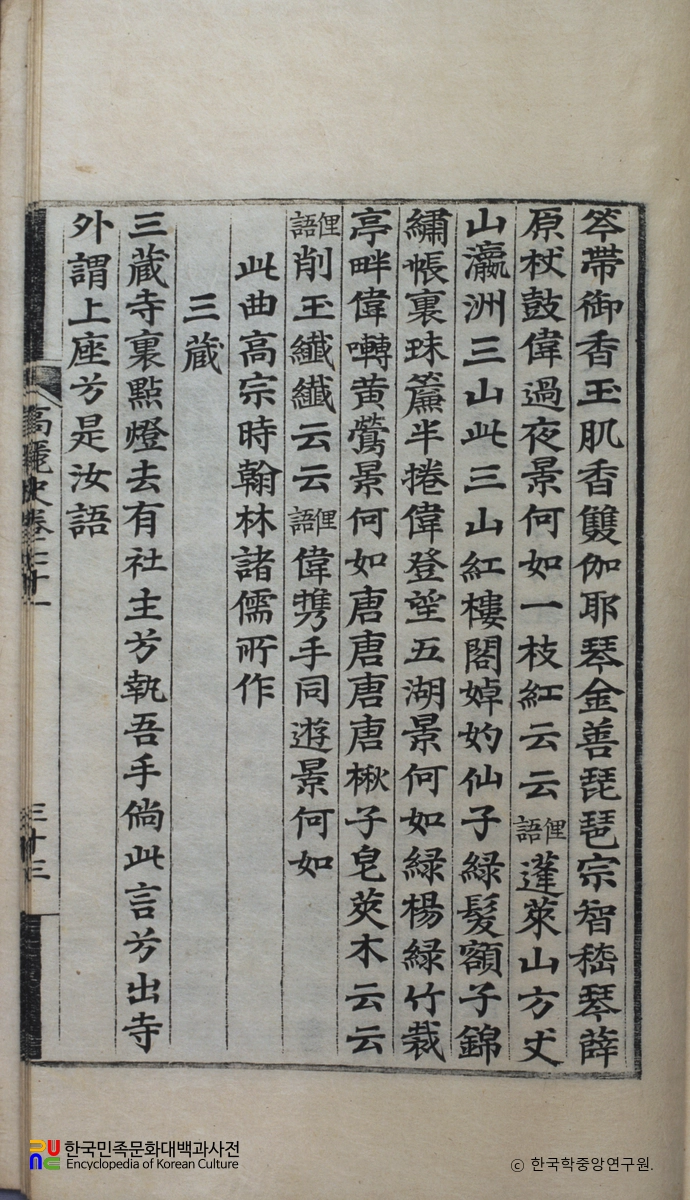 笒帶御香玉肌香雙伽耶琴金善琵琶宗智嵇琴薛
原杖鼓偉過夜景何如一枝紅云云俚語蓬萊山方丈
山瀛洲三山此三山紅樓閣婥妁仙子綠髮額子錦
繡帳裏珠簾半捲偉登望五湖景何如綠楊綠竹栽
亭畔偉囀黃鶯景何如唐唐唐唐楸子皂莢木云云
俚語削玉纖纖云云俚語偉携手同遊景何如
此曲高宗時翰林諸儒所作
三藏
三藏寺裏點燈去有社主兮執吾手倘此言兮出寺
外謂上座兮是汝語
高麗史卷七十一
三十三
한국민족문화대백과사전
Encyclopedia of Korean Culture
© 한국학중앙연구원.